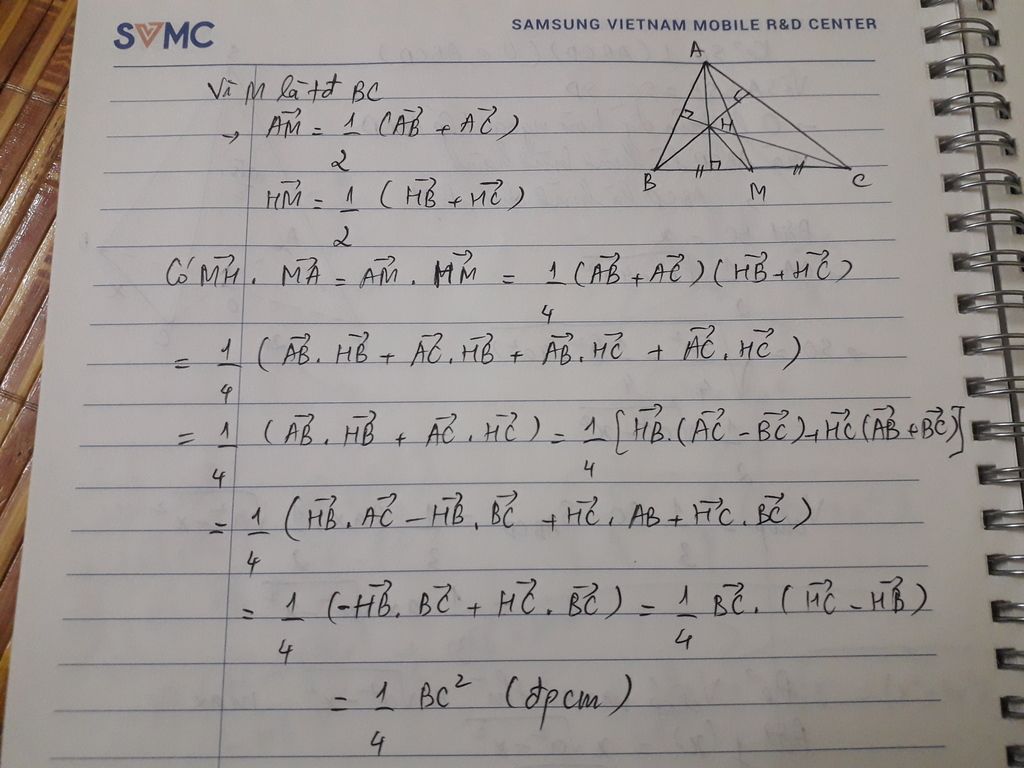 SVMC
SAMSUNG VIETNAM MOBILE R&D CENTER
Vì M là tđ BC
→ AM⃗ = 1/2 (AB⃗ + AC⃗)
HM⃗ = 1/2 (HB⃗ + HC⃗)
A
H
B
M
C
Có MH⃗ . MA⃗ = AM⃗ . HM⃗ = 1/4 (AB⃗ + AC⃗)(HB⃗ + HC⃗)
= 1/4 (AB⃗ . HB⃗ + AC⃗ . HB⃗ + AB⃗ . HC⃗ + AC⃗ . HC⃗)
= 1/4 (AB⃗ . HB⃗ + AC⃗ . HC⃗) = 1/4 [HB⃗ . (AC⃗ - BC⃗) + HC⃗ (AB⃗ + BC⃗)]
= 1/4 (HB⃗ . AC⃗ - HB⃗ . BC⃗ + HC⃗ . AB + HC⃗ . BC⃗)
= 1/4 (-HB⃗ . BC⃗ + HC⃗ . BC⃗) = 1/4 BC⃗ . (HC⃗ - HB⃗)
= 1/4 BC² (đpcm)